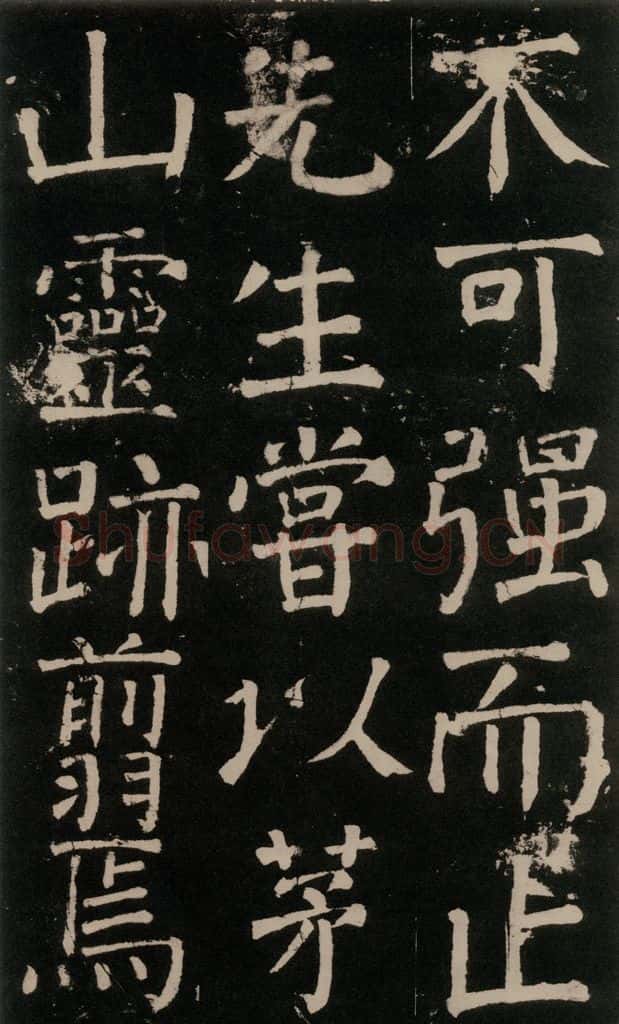 不可强而止
先生嘗以茅
山靈跡翦焉
Shufawang.CN